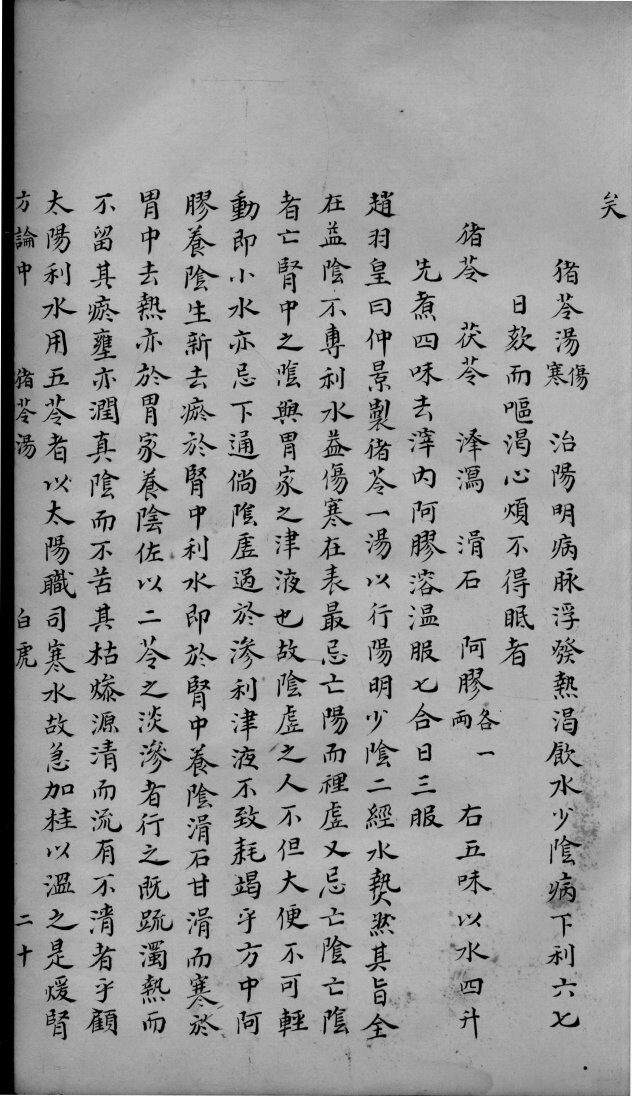 矣
猪苓湯 傷寒 治陽明病脉浮發熱渴飲水少陰病下利六七
日欬而嘔渴心煩不得眠者
猪苓 茯苓 澤瀉 滑石 阿膠 各一兩 右五味以水四升
先煮四味去滓內阿膠溶溫服七合日三服
趙羽皇曰仲景製猪苓一湯以行陽明少陰二經水熱然其旨全
在益陰不專利水益傷寒在表最忌亡陽而裡虛又忌亡陰亡陰
者亡腎中之陰與胃家之津液也故陰虛之人不但大便不可輕
動即小水亦忌下通倘陰虛過於滲利津液不致耗竭乎方中阿
膠養陰生新去瘀於腎中利水即於腎中養陰滑石甘滑而寒於
胃中去熱亦於胃家養陰佐以二苓之淡滲者行之既疏濁熱而
不留其瘀壅亦潤真陰而不苦其枯燥源清而流有不清者乎顧
太陽利水用五苓者以太陽職司寒水故急加桂以溫之是煖腎
方論中 猪苓湯 白虎 二十